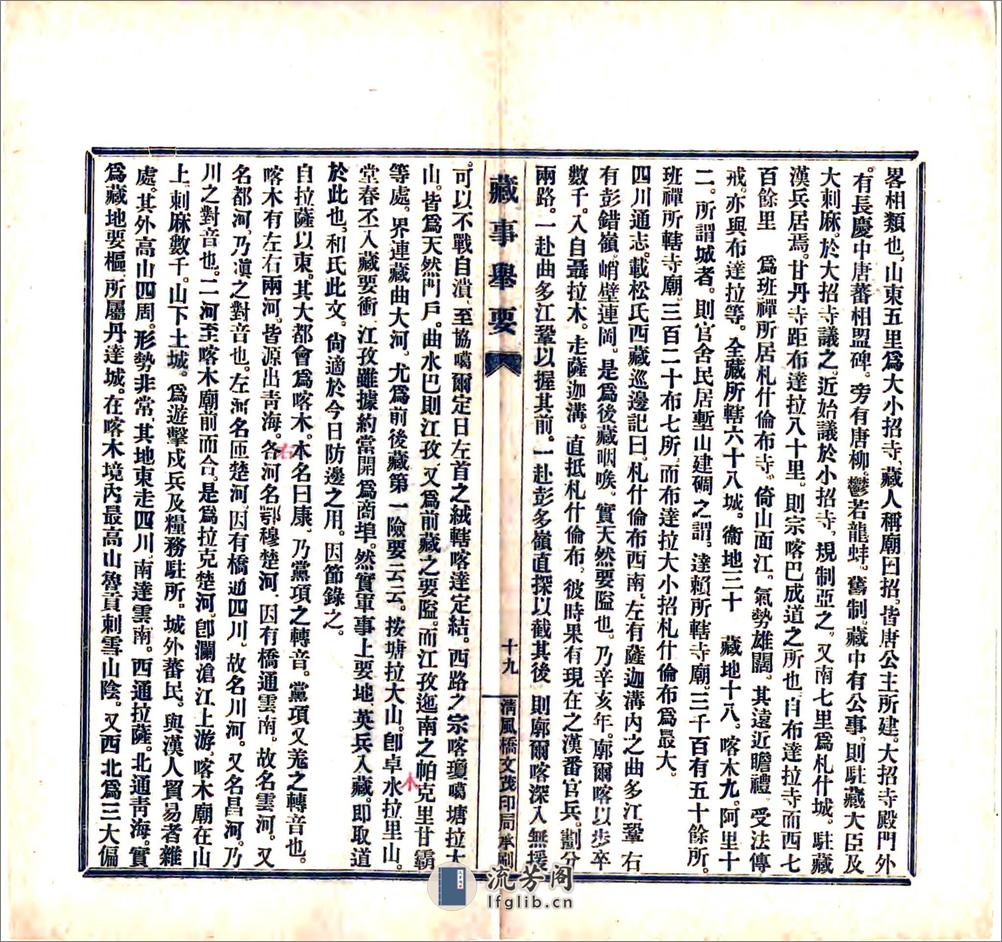 畧相類也。山東五里爲大小招寺。藏人稱廟曰招。皆唐公主所建。大招寺殿門外
有長慶中唐蕃相盟碑。旁有唐柳。鬱若龍蚌。舊制。藏中有公事。則駐藏大臣及
大剌麻。於大招寺議之。近始議於小招寺。規制亞之。又南七里爲札什城。駐藏
漢兵居焉。甘丹寺距布達拉八十里。則宗喀巴成道之所也。自布達拉寺而西七
百餘里 爲班禪所居札什倫布寺。倚山面江。氣勢雄闊。其遠近瞻禮 受法傳
戒。亦與布達拉等。全藏所轄六十八城。衞地三十 藏地十八。喀木九。阿里十
二。所謂城者。則官舍民居塹山建碉之謂。達賴所轄寺廟。三千百有五十餘所。
班禪所轄寺廟。三百二十布七所。而布達拉大小招札什倫布爲最大。
四川通志。載松氏西藏巡邊記曰。札什倫布西南。左有薩迦溝內之曲多江鞏 右
有彭錯嶺。峭壁連岡。是爲後藏咽喉。實天然要隘也。乃辛亥年。廓爾喀以步卒
數千。入自聶拉木。走薩迦溝。直抵札什倫布。彼時果有現在之漢番官兵。劃分
兩路。一赴曲多江鞏以握其前。一赴彭多嶺直探以截其後 則廓爾喀深入無援
藏事舉要
十九
清風橋文茂印局承刷
可以不戰自潰。至協噶爾定日左首之絨轄喀達定結。西路之宗喀瓊噶塘拉大
山。皆爲天然門戶。曲水巴則江孜。又爲前藏之要隘。而江孜迤南之帕克里甘霸
等處。界連藏曲大河。尤爲前後藏第一險要云云。按塘拉大山。卽卓水拉里山。
木
堂春丕入藏要衝 江孜雖據約當開爲商埠。然實軍事上要地。英兵入藏。卽取道
於此也。和氏此文。尙適於今日防邊之用。因節錄之。
自拉薩以東。其大都會爲喀木。本名曰康。乃黨項之轉音。黨項又羗之轉音也。
喀木有左右兩河。皆源出青海。各河名鄂穆楚河。因有橋通雲南。故名雲河。又
右
名都河。乃滇之對音也。左河名匝楚河。因有橋通四川。故名川河。又名昌河。乃
川之對音也。二河至喀木廟前而合。是爲拉克楚河。卽瀾滄江上游。喀木廟在山
上。剌麻數千。山下土城。爲遊擊戍兵及糧務駐所。城外蕃民。與漢人貿易者雜
處。其外高山四周。形勢非常。其地東走四川。南達雲南。西通拉薩。北通青海。實
爲藏地要樞。所屬丹達城。在喀木境內最高山魯貢剌雪山陰。又西北爲三大偏
流芳阁
lfglib.cn